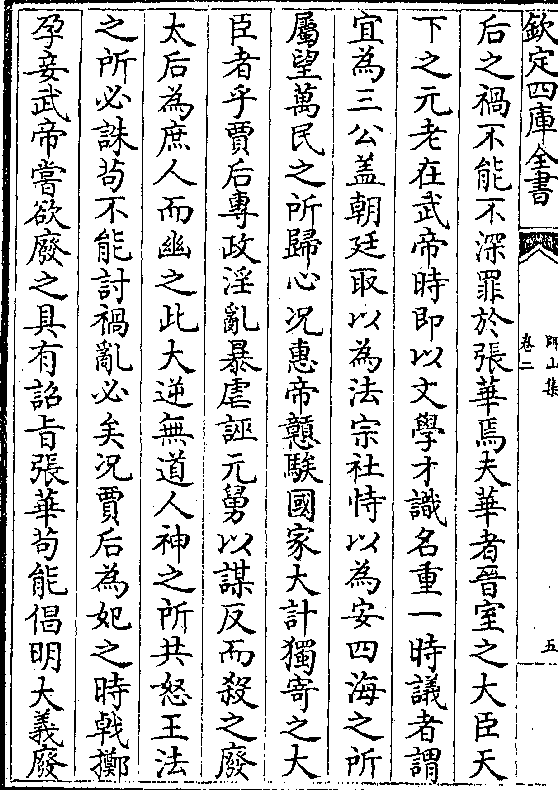 欽定四庫全書
師山集
卷二
五
后之禍不能不深罪於張華焉夫華者晉室之大臣天
下之元老在武帝時即以文學才識名重一時議者謂
宜為三公盖朝廷取以為法宗社恃以為安四海之所
屬望萬民之所歸心况惠帝戇騃國家大計獨寄之大
臣者乎賈后專政淫亂暴虐誣元舅以謀反而殺之廢
太后為庶人而幽之此大逆無道人神之所共怒王法
之所必誅茍不能討禍亂必矣况賈后為妃之時戟擲
孕妾武帝嘗欲廢之具有詔旨張華茍能倡明大義廢